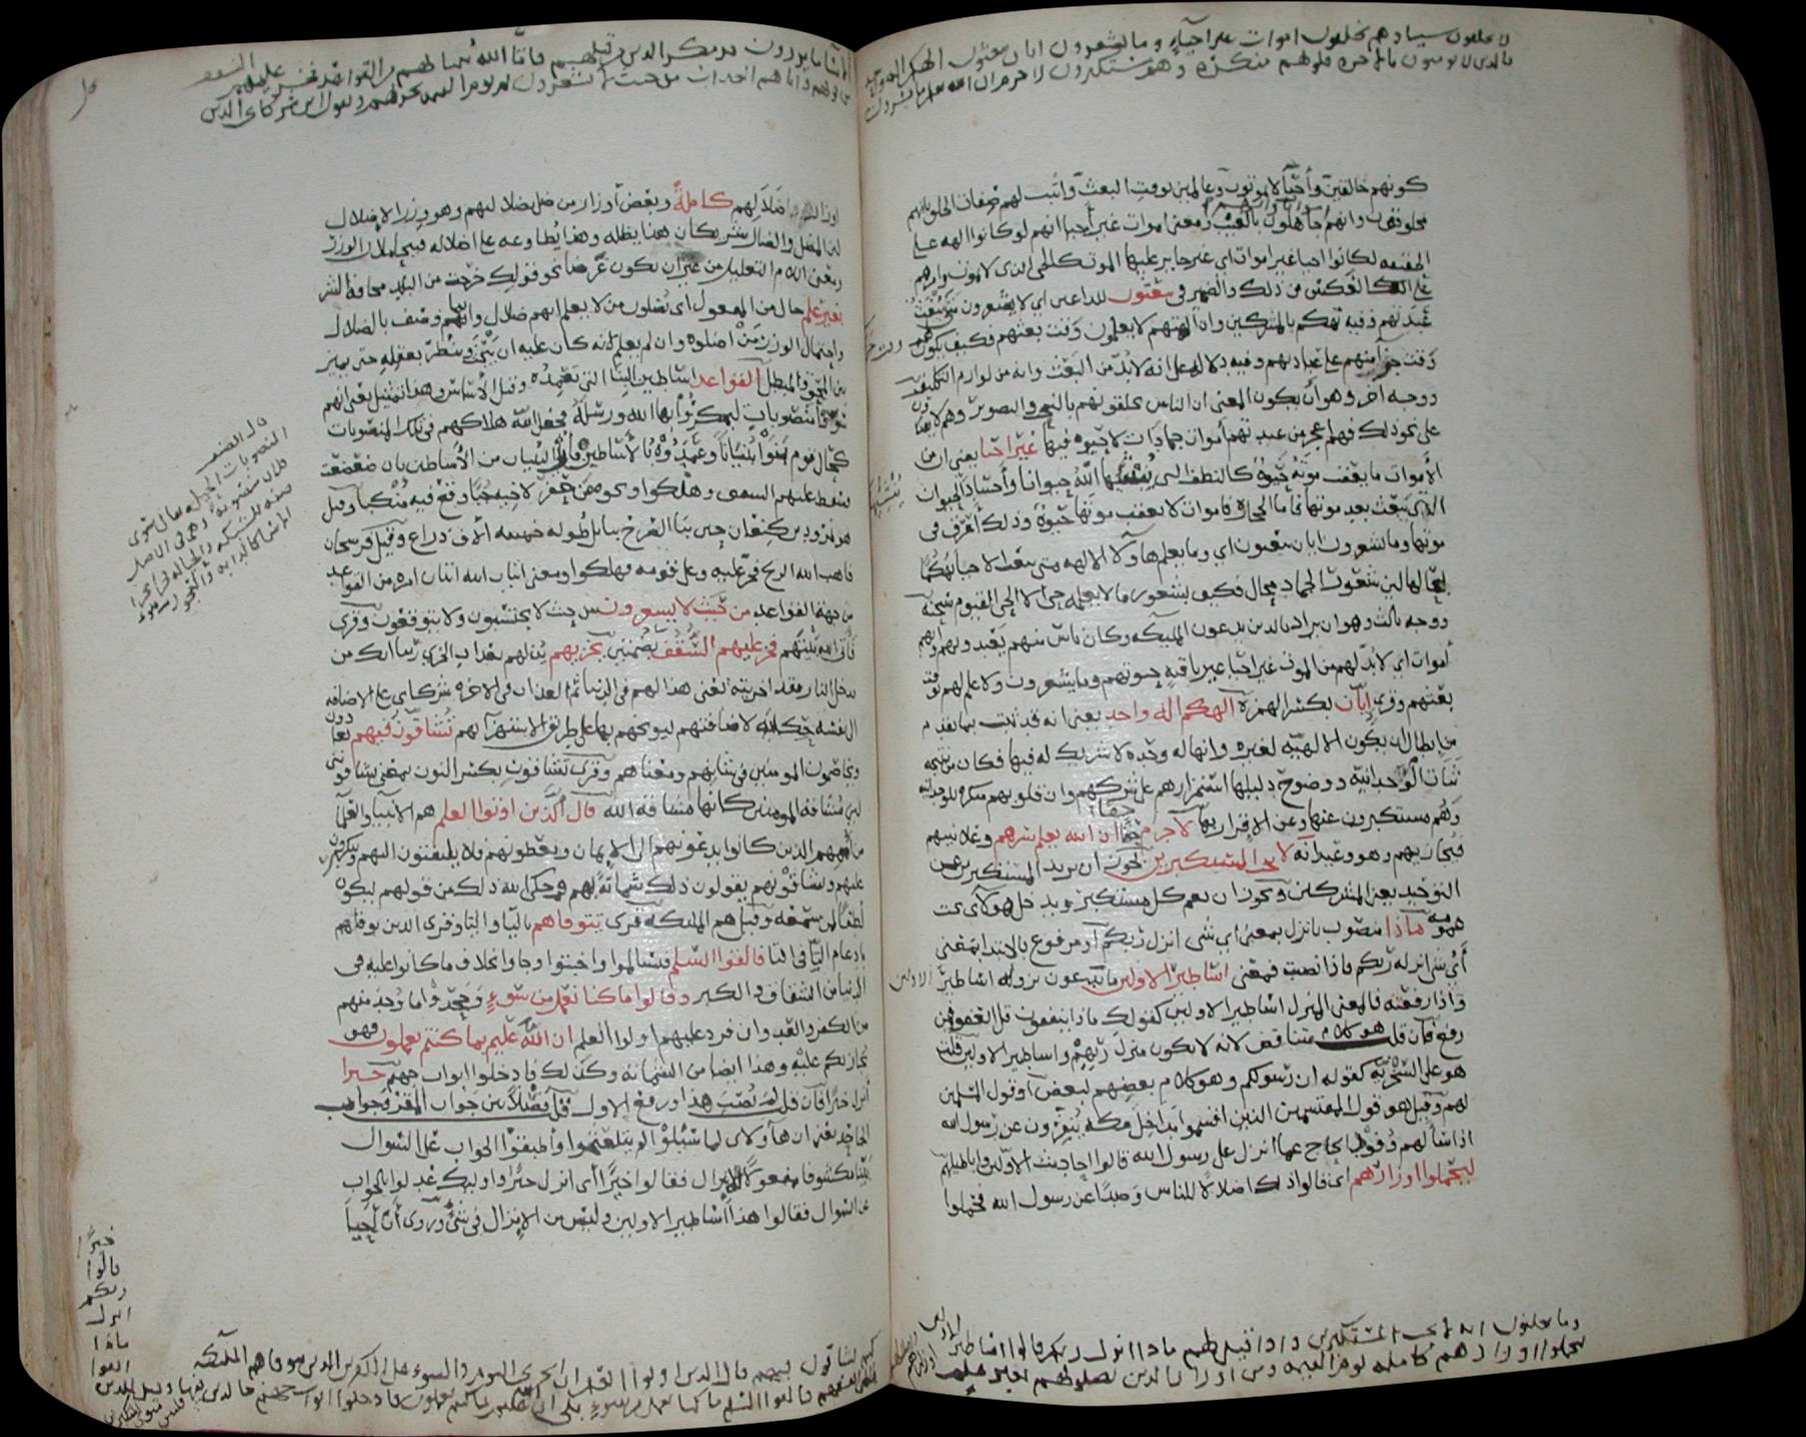 لا يخلقون شيئا وهم يخلقون اموات غير احياء وما يشعرون ايان يبعثون الهكم اله واحد
فالذين لا يومنون بالاخره قلوبهم منكره وهم مستكبرون لا جرم ان الله يعلم ما يسرون
كونهم خالقين وأحيآ لا يموتون وعالمين بوقت البعث وأثبت لهم صفات الخلق بانهم
مخلوقون وانهم اموات وانهم جاهلون بالغيب ومعنى اموات غير أحيا انهم لو كانوا الهه على
الحقيقه لكانوا احيا غير اموات اى غير جايز عليها الموت كالحى الذى لا يموت وامرهم
على العكس من ذلك والضمير فى يبعثون للداعين اى لا يشعرون متى تبعث
عبدتهم وفيه تهكم بالمشركين وان الهتهم لا يعلمون وقت بعثهم فكيف يكون لهم
وقت جزآ منهم على عبادتهم وفيه دلاله على انه لا بُدّ من البعث وانه من لوازم التكليف
ووجه اخر وهو أن يكون المعنى ان الناس يخلقونهم بالنحت والتصوير وهم لا يقدرون
على نحو ذلك فهم اعجز من عبدتهم أموات جمادات لا حيوه فيها غير احيا يعنى ان من
الأموات ما يعقب موته حيوة كالنطف التى ينشئها الله حيوانا وأجساد الحيوان
التى تبعث بعد موتها فاما الحجاره فاموات لا يعقب موتها حيوة وذلك أعرق فى
موتها وما يشعرون ايان يبعثون اى وما يعلم هاولا الالهه متى تبعث الاحيا تهكما
بحالها لان شعور الجماد محال فكيف بشعور ما لا يعلمه حى الا الحى القيوم سبحنه
ووجه ثالث وهو ان يراد بالذين يدعون المليكه وكان ناس منهم يعبدونهم وانهم
أموات اى لا بد لهم من الموت غير احيا غير باقيه حيوتهم وما يشعرون ولا علم لهم بوقت
بعثهم وقرى إيّان بكسر الهمزه الهكم اله واحد يعنى انه قد ثبت بما تقدم
من ابطال ان يكون الالهيه لغيره وانها له وحده لا شريك له فيها فكان من نتيجه
ثبات الوحدانيه ووضوح دليلها استمرارهم على شركهم وان قلوبهم منكره للوحدانيه
وهم مستكبرون عنها وعن الاقرار بها لا جرم حقا ان الله يعلم سرهم وعلانيتهم
فيجازيهم وهو وعيد انه لا يحب المستكبرين يجوز ان يريد المستكبرين عن
التوحيد يعنى المشركين ويجوز ان يعم كل مستكبر ويدخل هولاى تحت
عمومه ماذا منصوب بانزل بمعنى اى شى انزل ربكم او مرفوع بالابتدا بمعنى
أىّ شى انزله ربكم فاذا نصبت فمعنى اساطير الاولين ما يدعون نزوله اساطير الاولين
واذا رفعته فالمعنى المنزل اساطير الاولين كقولك ماذا ينفقون قل العفو فيمن
رفع فان قلت هو كلام متناقض لانه لا يكون منزل ربهم واساطير الاولين قلت
هو على السخريه كقوله ان رسولكم وهو كلام بعضهم لبعض او قول المسلمين
لهم وقيل هو قول المقتسمين الذين اقتسموا مداخل مكه ينفرون عن رسول الله
اذا سألهم وفود الحاج عما انزل على رسول الله قالوا احاديث الاولين واباطيلهم
ليحملوا اوزارهم اى قالوا ذلك اضلالا للناس وصدًا عن رسول الله فحملوا
وما يعلنون انه لا يحب المستكبرين واذا قيل لهم ماذا انزل ربكم قالوا اساطير الاولين
ليحملوا اوزارهم كامله يوم القيمه ومن اوزار الذين يضلونهم بغير علم
ألا سآ ما يزرون قد مكر الذين من قبلهم فاتى الله بنيانهم من القواعد فخر عليهم السقف
من فوقهم واتاهم العذاب من حيث لا يشعرون ثم يوم القيمه يخزيهم ويقول اين شركاى الذين
اوزار ضلالهم كاملةً وبعض أوزار من ضل بضلالهم وهو وزر الاضلال
لان المضل والضال شريكان هذا يضله وهذا يطاوعه على اضلاله فيتحاملان الوزر
ومعنى اللام التعليل من غير ان يكون غرضا نحو قولك خرجت من البلد مخافة الشر
بغير علم حال من المفعول اى يضلون من لا يعلم انهم ضلال وانما وصف بالضلال
واحتمال الوزر من أضلوه وان لم يعلم لانه كان عليه ان يبحث وينظر بعقله حتى يميز
بين المحق والمبطل القواعد اساطين البنا التى تعمده وقيل الأساس وهذا تمثيل يعنى انهم
سوّوا منصوبات ليمكروا بها الله ورسله فجعل الله هلاكهم فى تلك المنصوبات
كحال قوم بنوا بنيانًا وعمدوه بالأساطين فأتى البنيان من الأساطين بان ضعضعت
فسقط عليهم السقف وهلكوا ونحوه من حفر لاخيه جُبًّا وقع فيه مُنكبًا وقيل
هو نمرود بن كنعان حين بنا الصرح ببابل طوله خمسه الاف ذراع وقيل فرسخان
فاهب الله الريح فخر عليه وعلى قومه فهلكوا ومعنى اتيان الله اتيان امره من القواعد
من جهة القواعد من حيث لا يشعرون من حيث لا يحتسبون ولا يتوقعون وقرى
فأتى الله بيتهم فخر عليهم السُّقُف بضمتين يخزيهم يذلهم بعذاب الخزى ربنا انك من
تدخل النار فقد اخزيته يعنى هذا لهم فى الدنيا ثم العذاب فى الاخره شركاى على الاضافه
الى نفسه حكايه لاضافتهم ليوبخهم بها على طريق الاستهزآ بهم تشاقون فيهم تعادون
وتخاصمون المومنين فى شانهم ومعناهم وقرى تشاقون بكسر النون بمعنى تشاقوننى
لان مشاقة المومنين كانها مشاقه الله قال الذين اوتوا العلم هم الانبيا والعلمآ
من أممهم الذين كانوا يدعونهم الى الايمان ويعظونهم ولا يلتفتون اليهم ويتكبرون
عليهم ويشاقونهم يقولون ذلك شماتة بهم وحكى الله ذلك من قولهم ليكون
لطفًا لمن سمعه وقيل هم المليكه قرى تتوفاهم باليا والتا وقرى الذين توفاهم
بادغام التآ فى التا فالقوا السّلم فسالموا واخبتوا وجاوا بخلاف ما كانوا عليه فى
الدنيا من الشقاق والكبر وقالوا ما كنا نعمل من سوء وجحدوا ما وُجد منهم
من الكفر والعدوان فرد عليهم اولوا العلم ان الله عليم بما كنتم تعملون فهو
يجازيكم عليه وهذا ايضا من الشماته وكذلك فادخلوا ابواب جهنم خيرا
أنزل خيرًا فان قلت لِمَ نُصب هذا ورفع الاول قلت فصلاً بين جواب المقر وجواب
الجاحد يعنى ان هاولاى لما سُئلوا لم يتلعثموا وأطبقوا الجواب على السوال
بيّنًا مكشوفا مفعولا للانزال فقالوا خيرًا أى انزل خيرًا واوليك عدلوا بالجواب
عن السوال فقالوا هذا أساطير الاولين وليس من الإنزال فى شئ وروى أنّ أحياً
كنتم تشاقون فيهم قال الذين اوتوا العلم ان الخزى اليوم والسوء على الكفرين الذين تتوفاهم المليكه
ظالمى انفسهم فالقوا السلم ما كنا نعمل من سوءٍ بلى ان الله عليم بما كنتم تعملون فادخلوا ابواب جهنم خالدين فيها
خيرًا
قالوا
ربكم
انزل
ماذا
اتقوا